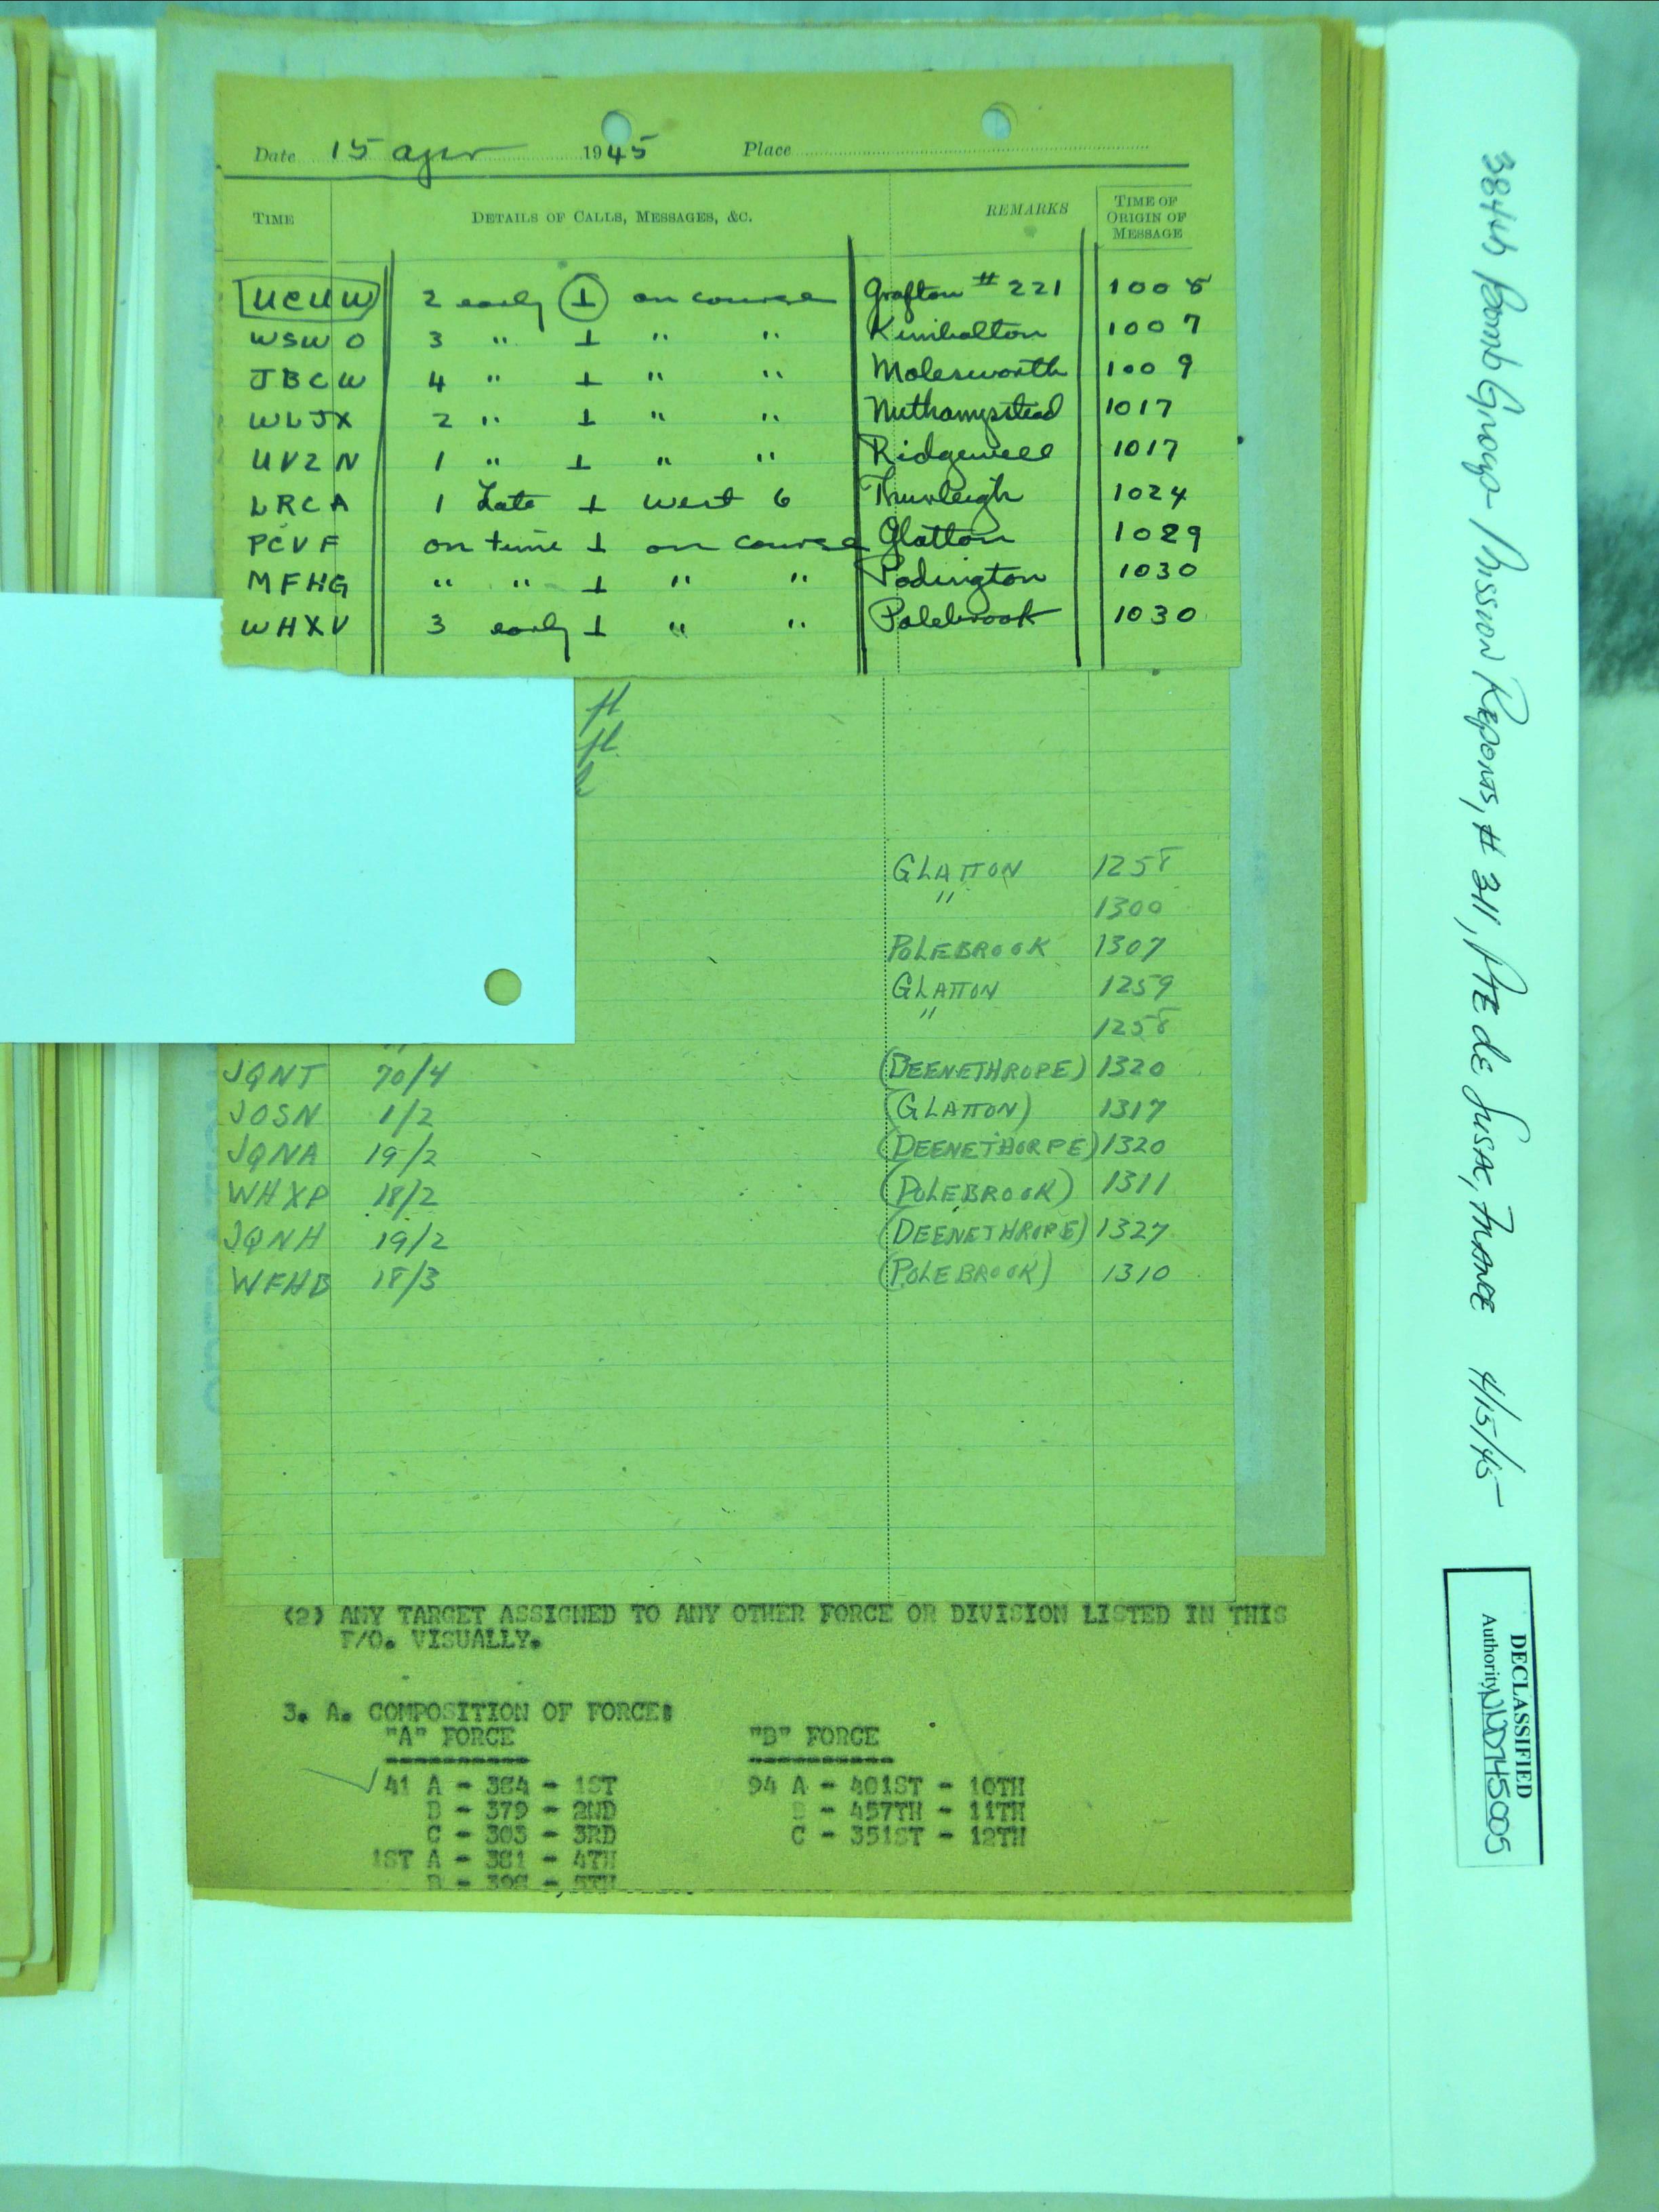 Date 15 apr 1945 Place
TIME DETAILS OF CALLS, MESSAGES, &C. REMARKS TIME OF ORIGIN OF MESSAGE
UCUW 2 early ⊥ on course Grafton # 221 1005
WSWO 3 " ⊥ " " Kimbolton 1007
JBCW 4 " ⊥ " " Molesworth 1009
WLJX 2 " ⊥ " " Nuthampstead 1017
UVZN 1 " ⊥ " " Ridgewell 1017
LRCA 1 Late ⊥ west 6 Thurleigh 1024
PCVF on time ⊥ on course Glatton 1029
MFHG " " ⊥ " " Podington 1030
WHXV 3 early ⊥ " " Polebrook 1030
fl
fl
GLATTON 1258
" 1300
POLEBROOK 1307
GLATTON 1259
" 1258
JQNT 70/4 (DEENETHROPE) 1320
JOSN 1/2 (GLATTON) 1317
JQNA 19/2 (DEENETHORPE) 1320
WHXP 18/2 (POLEBROOK) 1311
JQNH 19/2 (DEENETHROPE) 1327
WFHB 18/3 (POLEBROOK) 1310
(2) ANY TARGET ASSIGNED TO ANY OTHER FORCE OR DIVISION LISTED IN THIS
F/O. VISUALLY.
3. A. COMPOSITION OF FORCE:
"A" FORCE "B" FORCE
41 A - 384 - 1ST 94 A - 401ST - 10TH
B - 379 - 2ND B - 457TH - 11TH
C - 303 - 3RD C - 351ST - 12TH
1ST A - 381 - 4TH
B - 398 - 5TH
384th Bomb Group - Mission Reports, # 311, Pte de Susac, France 4/15/45
DECLASSIFIED
Authority NND745005